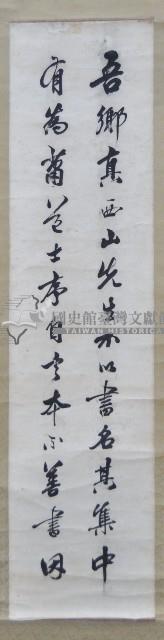 吾鄉真西山先生不以書名其集中
有為蕭道士序自云本不善書因
國史館臺灣文獻館
TAIWAN HISTORICA